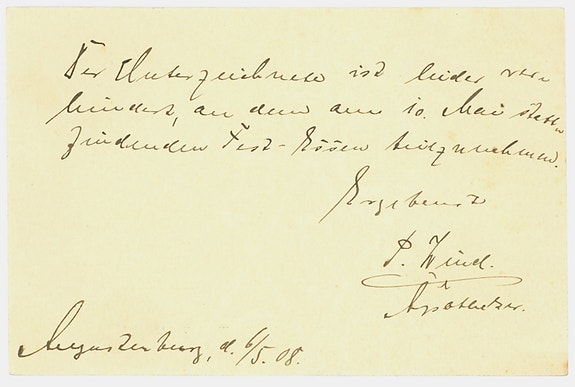 Der Unterzeichnete ist leider ver-
hindert, an dem am 10. Mai statt-
findenden Fest-Essen teilzunehmen.
Ergebenst
P. Wind.
Apotheker.
Augustenburg, d. 6/5. 08.